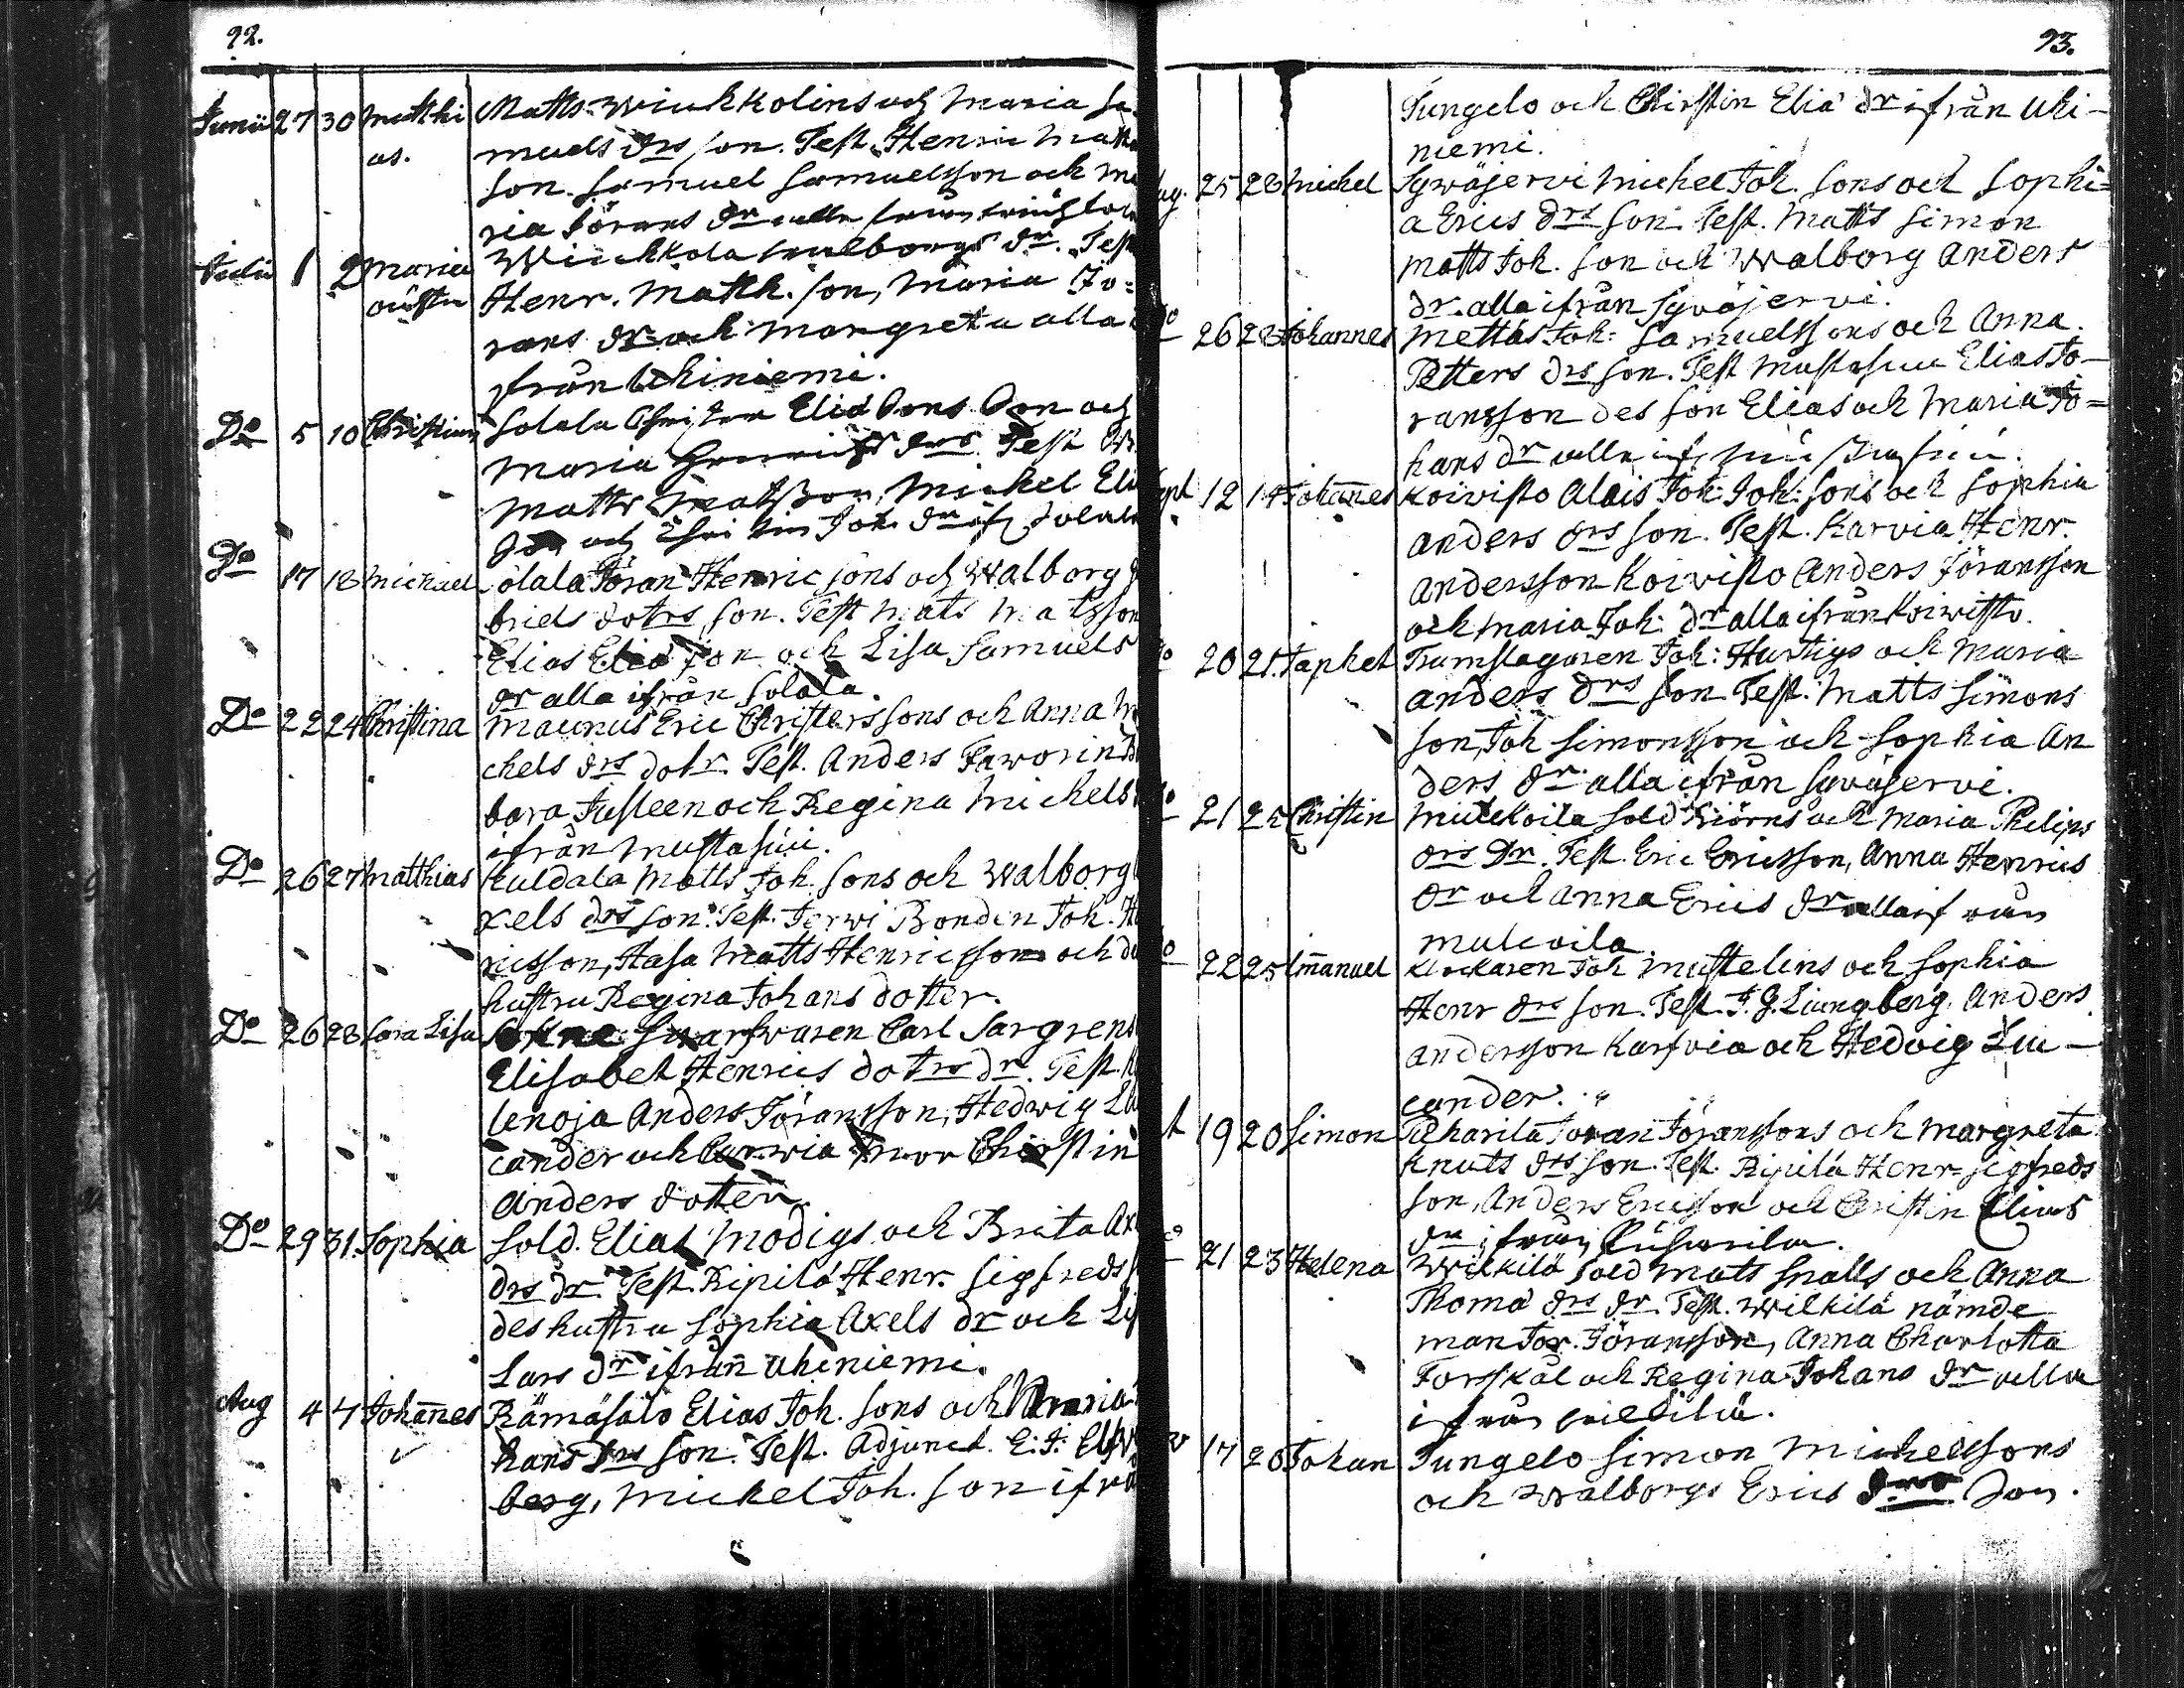 92.
Junii 27 30 Matthi Matts Winkkolins och Maria Sa
as. muels drs son. Test. Henric Matts
son. Samuel Samuelsson och Ma
ria Jörans dr alla
Julii 1 2 Maria Winkkola Walborgs dr. Test
Henr. Matth. son, Maria Jö=
rans dr och Margreta alla
ifrån Uhiniemi.
Do 5 10 Christian Solala Christer Eliæ Sons Son och
Maria Henrics drs Test
Matts Matsson, Michel Eli
Son och Christin Joh. dr if Solala
Do 17 18 Michael Solala Jöran Henric sons och Walborg
briels dotrs son. Test Mats Matsson
Elias Eliæ son och Lisa Samuels
dr alla ifrån Solala.
Do 22 24 Christina Maunus Eric Christerssons och Anna Mi
chels drs dotr. Test. Anders Faworin
bara Jusleen och Regina Michels
ifrån Mustasuu.
Do 26 27 Matthias Kuldala Matts Joh. sons och Walborg
xels drs son. Test. Jerwi Bonden Joh. He
ricsson, Hasa Matts Henricsson och de
hustru Regina Johans dotter.
Do 26 28 Sara Lisa Sokne Swarfwaren Carl Sargrens
Elisabet Henrics dotrs dr. Test.
lenoja Anders Jöransson, Hedwig Liu
cander och Carwia Mor Christin
Anders dotter.
Do 29 31. Sophia Sold. Elias Modigs och Brita Ax
drs dr. Test. Ripilä Henr. Sigfreds
des hustru Sophia Axels dr och Lis
Lars dr ifrån Uhiniemi.
Aug 4 7 Johannes Rämäsalo Elias Joh. sons och Maria
hans drs son. Test. Adjunct. E: J: Elfw
berg, Michel Joh. son ifrå
93.
Jungelo och Christin Eliæ dr ifrån Uhi-
niemi.
Aug. 25 28 Michel Sywäjerwi Michel Joh. sons och Sophi=
a Erics drs son. Test. Matts Simon
Matts Joh. son och Walborg Anders
dr. alla ifrån Sywäjerwi.
Do 26 28 Johannes Mettäs Joh: Samuelssons och Anna
Petters drs son. Test Mustasuu Elias Jö-
ransson des son Elias och Maria Jo=
hans dr alla if Mustasuu.
Sept 12 14 Johannes Koivisto Alais Joh: Joh: sons och Sophia
Anders drs son. Test. Karvia Henr.
Andersson Koivisto Anders Jöransson
och Maria Joh: dr alla ifrån Koivisto.
Do 20 21. Japhet Trumslagaren Joh: Hurtigs och Maria
Anders drs son. Test. Matts Simons
son, Joh Simonsson och Sophia An
ders dr alla ifrån Sywäjerwi.
Do 21 25 Christin Mulkoila Sold Biörns och Maria Philips
drs Dr. Test. Eric Ericsson, Anna Henrics
dr och Anna Erics dr alla ifrån
Mulkoila.
Do 22 25 Imanuel Klockaren Joh Mustelins och Sophia
Henr drs son. Test. J. G. Liungberg. Anders
Andersson Karfvia och Hedvig Liu-
cander.
19 20 Simon Riharila Joran Joranssons och Margreta
Knuts drs son. Test. Ripilä Henr. Sigfreds
son, Anders Ericsson och Cristin Elias
dr ifrån Riharila.
Do 21 23 Helena Wilkilä Sold Mats Snälls och Anna
Thomæ drs dr. Test. Wilkilä nämde
man Jor. Jöransson, Anna Charlotta
Forsskål och Regina Johans dr alla
ifrån Wilkilä.
17 20 Johan Jungelo Simon Michelssons
och Walborgs Erics drs Son.